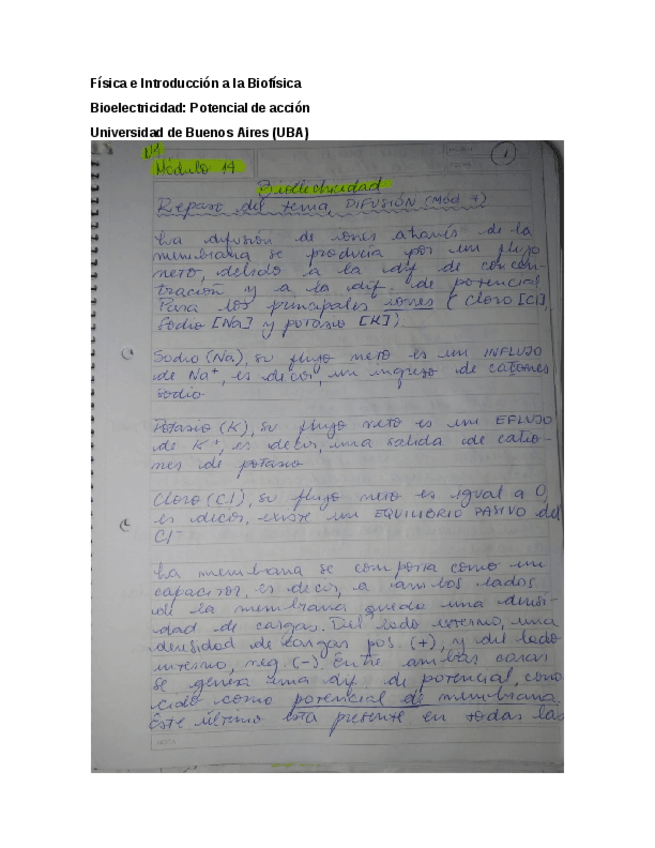 Física e Introducción a la Biofísica
Bioelectricidad: Potencial de acción
Universidad de Buenos Aires (UBA)
1
Módulo 14
Bioelectricidad
Repaso del tema, DIFUSIÓN (Mód 7)
La difusión de iones através de la
membrana se producía por un flujo
neto, debido a la dif. de concen-
tración y a la dif. de potencial
Para los principales iones (Cloro [Cl],
Sodio [Na] y potasio [K]).
Sodio (Na), su flujo neto es un INFLUJO
de Na+, es decir, un ingreso de cationes
sodio
Potasio (K), su flujo neto es un EFLUJO
de K+, es decir, una salida de catio-
nes de potasio
Cloro (Cl), su flujo neto es igual a 0,
es decir, existe un EQUILIBRIO PASIVO del
Cl-
La membrana se comporta como un
capacitor, es decir, a ambos lados
de la membrana queda una densi-
dad de cargas. Del lado externo, una
densidad de cargas pos. (+), y del lado
interno, neg. (-). Entre ambas caras
se genera una dif. de potencial, cono
cido como potencial de membrana.
Este último esta presente en todas las